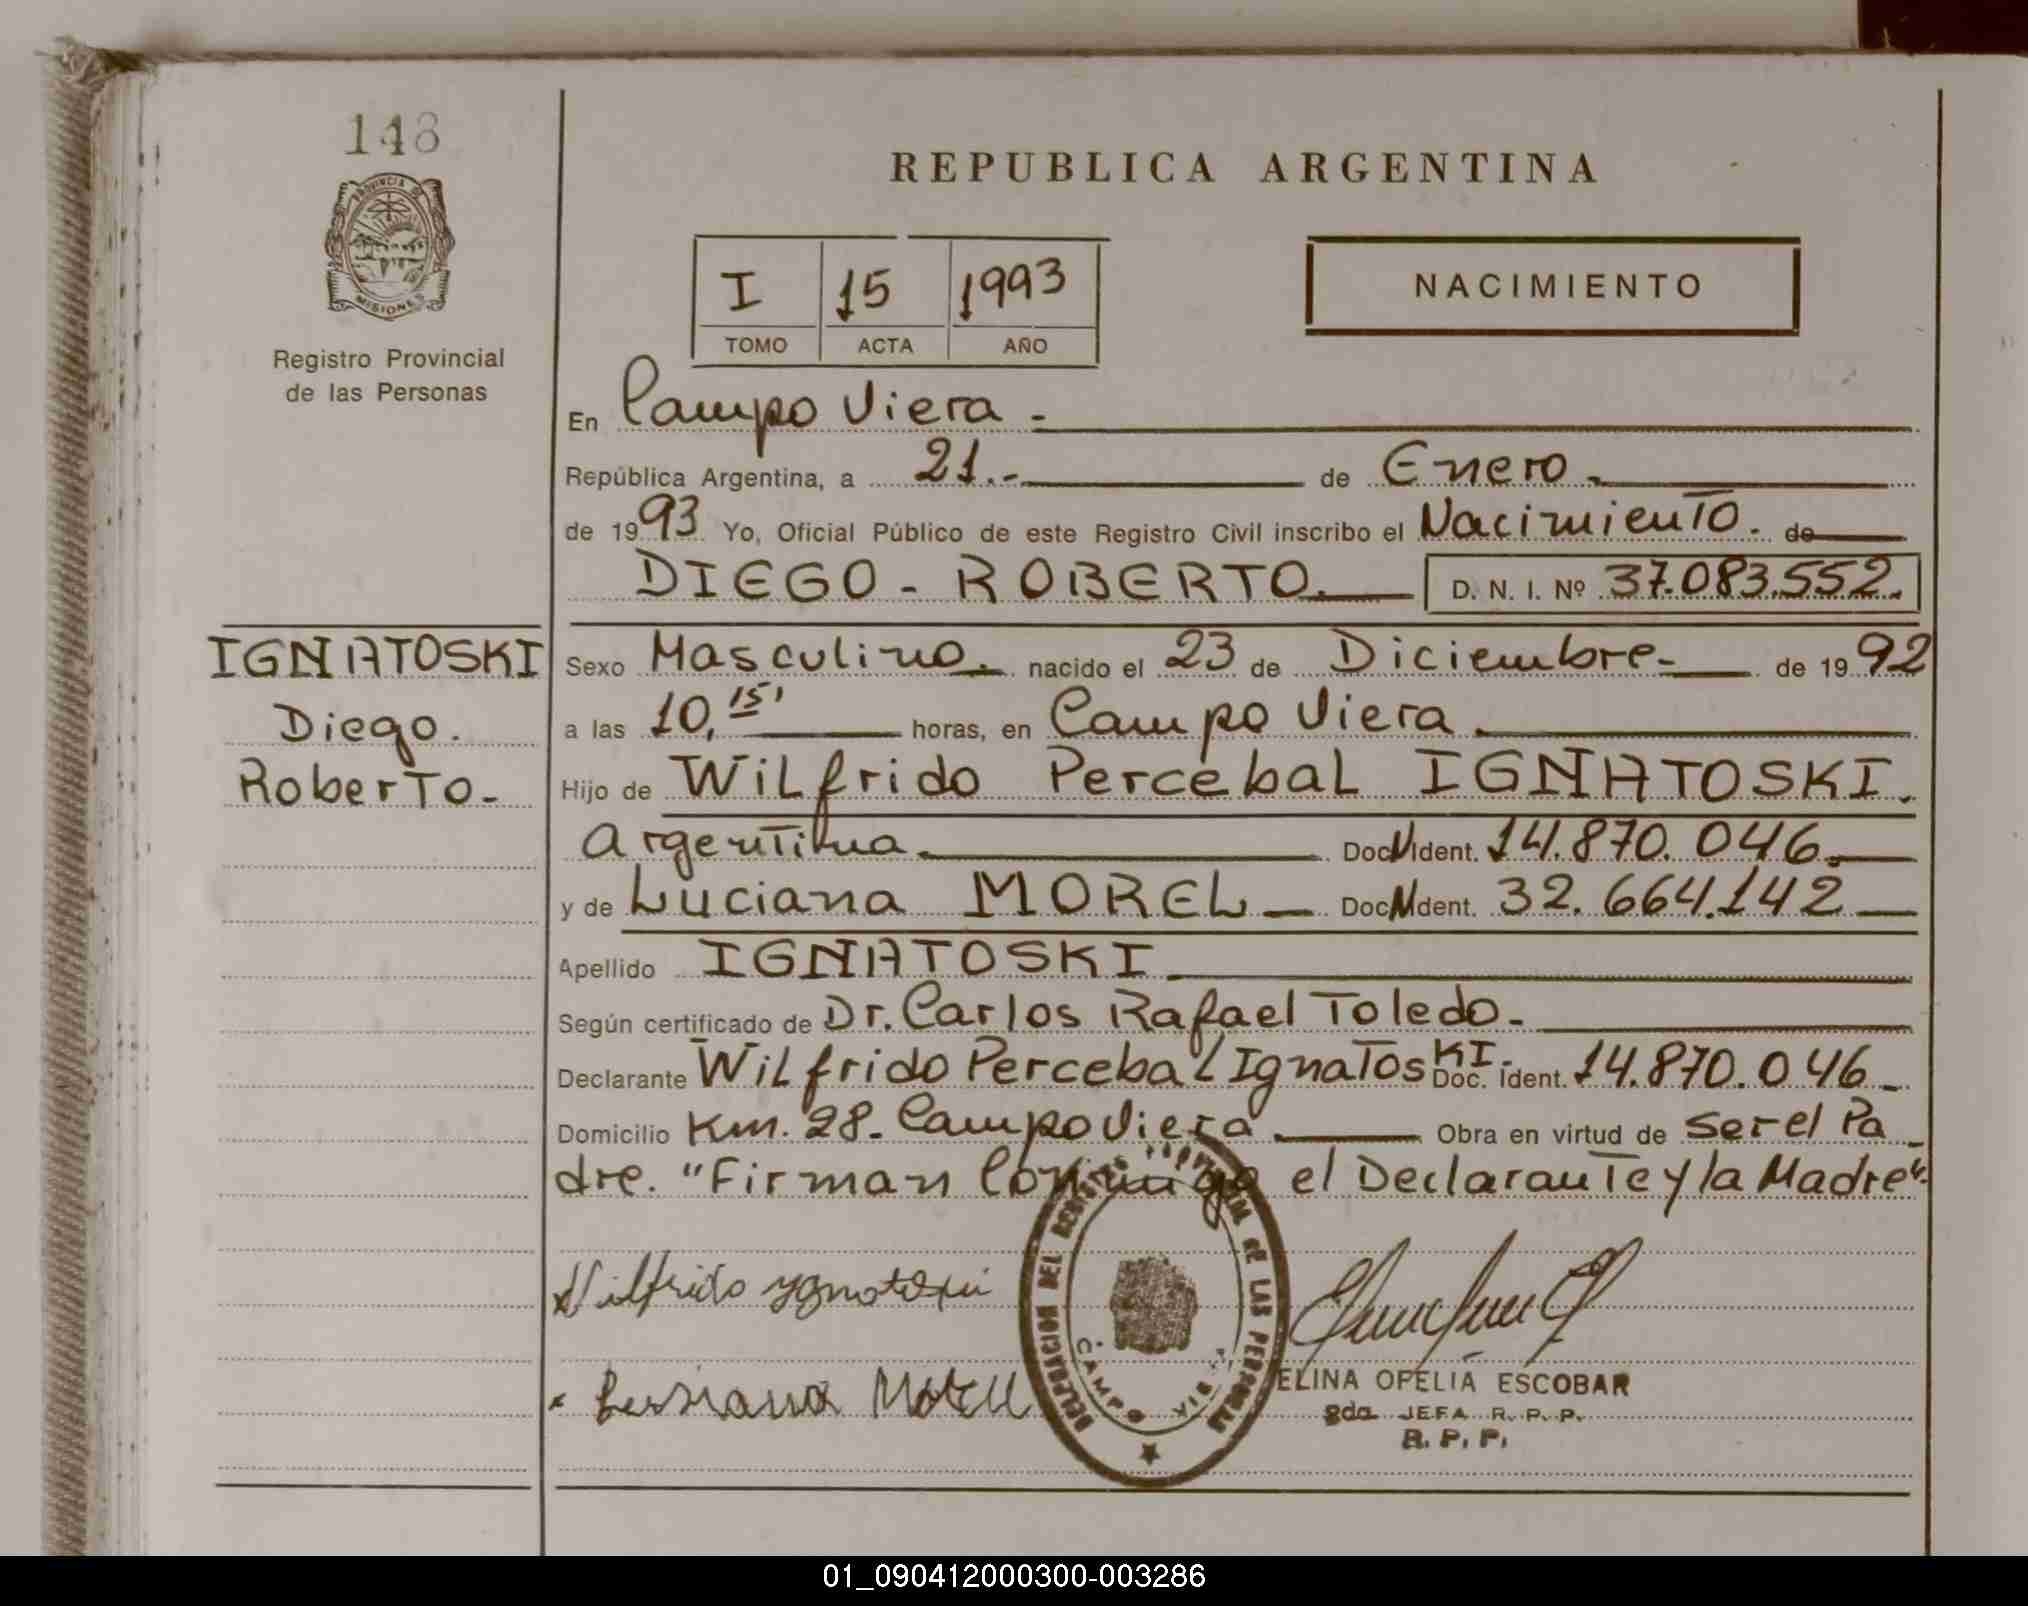 148
PROVINCIA DE
MISIONES
Registro Provincial
de las Personas
REPUBLICA ARGENTINA
I 15 1993
TOMO ACTA AÑO
NACIMIENTO
En Campo Viera -
República Argentina, a 21.- de Enero.
de 1993 Yo, Oficial Público de este Registro Civil inscribo el Nacimiento. de
DIEGO - ROBERTO. D. N. I. Nº 37.083.552.
IGNATOSKI
Diego.
Roberto-
Sexo Masculino. nacido el 23 de Diciembre- de 1992
a las 10,15' horas, en Campo Viera
Hijo de Wilfrido Percebal IGNATOSKI.
Argentina. Doc. Ident. 14.870.046.
y de Luciana MOREL Doc. Ident. 32.664.142
Apellido IGNATOSKI
Según certificado de Dr. Carlos Rafael Toledo-
Declarante Wilfrido Percebal IgnatosKI- Doc. Ident. 14.870.046-
Domicilio Km. 28- Campo Viera Obra en virtud de ser el Pa-
dre. "Firman Conmigo el Declarante y la Madre".
DELEGACION DEL REGISTRO PROVINCIAL DE LAS PERSONAS
CAMPO VIERA
x Wilfrido
x Morell
ELINA OFELIA ESCOBAR
2da JEFA R. P. P.
R. P. P.
01_090412000300-003286